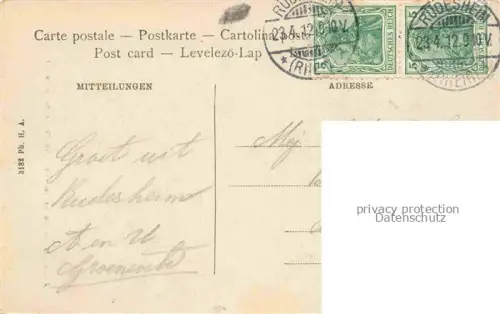 Carte postale – Postkarte – Cartolina
Post card – Levelező-Lap
RÜDESHEIM
23.4.12.9-10V.
*(RHEIN)
DEUTSCHES REICH
5
RÜDESHEIM
23.4.12.9-10V.
(RHEIN)
DEUTSCHES REICH
5
MITTEILUNGEN
ADRESSE
3182 Ph. H. A.
Groet uit
Rudesheim
A en U
Mej
privacy protection
Datenschutz